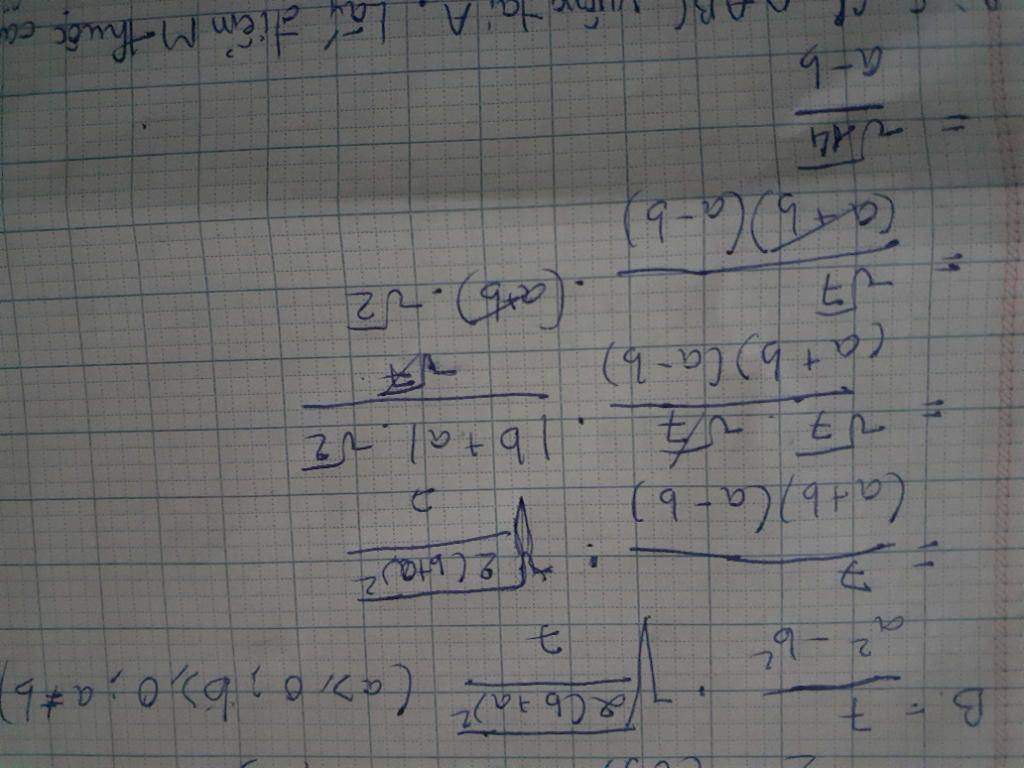 B = 7/(a² - b²) . √(2(b+a)²/7) (a ≥ 0; b ≥ 0; a ≠ b)
= 7/((a+b)(a-b)) . √(2(b+a)²/7)
= (√7 . √7)/((a+b)(a-b)) . (|b+a| . √2)/√7
= √7/((a+b)(a-b)) . (a+b) . √2
= √14/(a-b)
ABC vuông tại A. Lấy điểm M thuộc